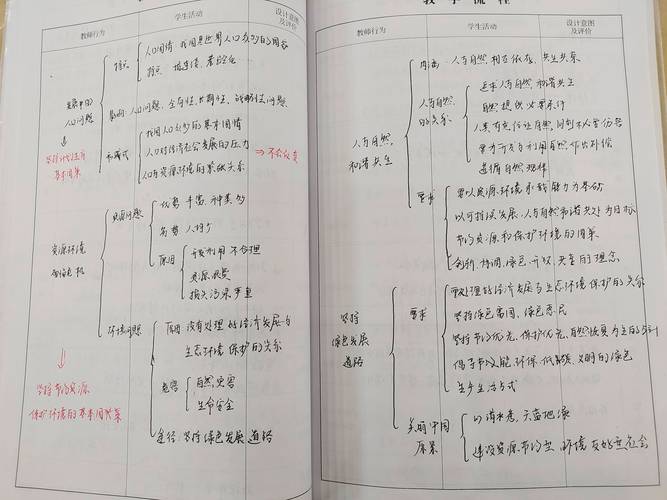 教师行为
学生活动
设计意图
及评价
特点
人口国情 我国是世界人口最多的国家
特点
发展中的
人口问题
影响 人口问题,全局性,长期性,战略性问题
坚持计划生育
基本国策
三不变
我国人口众多的基本国情
人口对经济社会发展的压力
人口与资源环境的紧张关系
资源环境
资源问题
优势 丰富、种类多
劣势 人均少
原因
开发利用不合理
资源浪费
损失污染严重
环境问题
原因 没有处理好经济发展与
生态环境保护的关系
危害
自然灾害
生命安全
途径 坚持绿色发展道路
坚持节约资源
保护环境的基本国策
教学流程
教师行为
学生活动
设计意图
及评价
人与自然
和谐共生
内涵 人与自然,相互依存,共生共系
人与自然
的关系
追求人与自然,和谐共生
自然提供必要条件
遵循自然规律
要求
要以资源环境承载能力为基础
以可持续发展、人与自然和谐共处为目标
节约资源和保护环境的国策
创新、协调、绿色、开放、共享的理念
坚持
绿色发展
道路
要求
要处理好经济发展与生态环境保护的关系
坚持绿色富国,绿色惠民
坚持节约优先、保护优先、自然恢复为主的方针
倡导节约能、环保、低碳、文明的绿色
生产生活方式
美丽中国
愿景
山清水秀,天蓝地绿
建设资源节约型、环境友好型社会